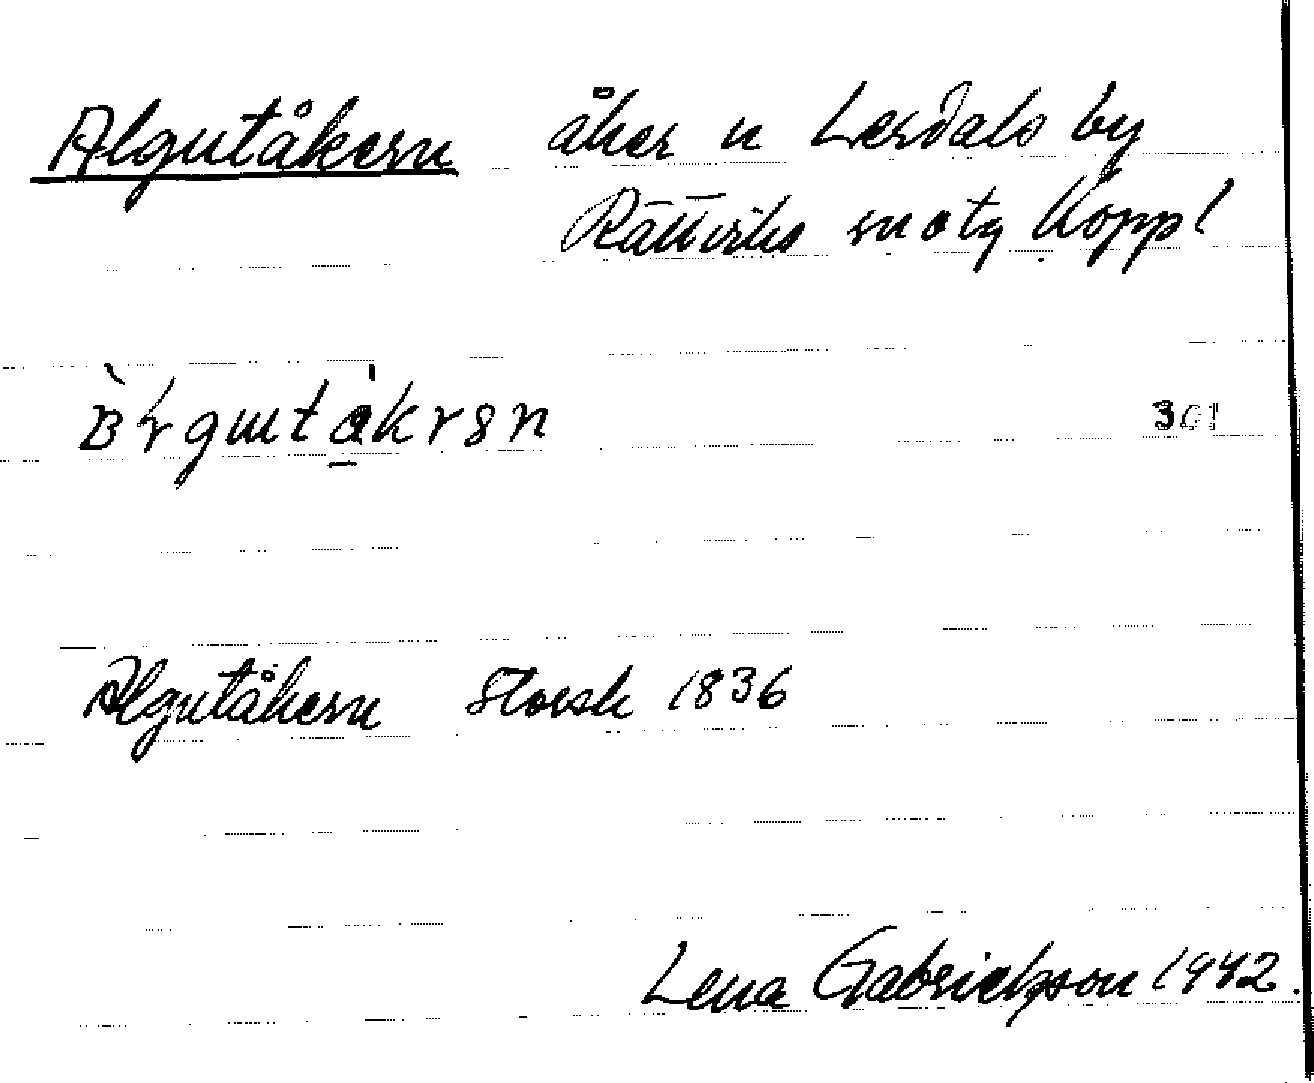 Algutåkern åker n Lerdals by
Rättviks sn o tg Kopp l
301
Algutåkern Storsk 1836
Lena Gabrielsson 1942.